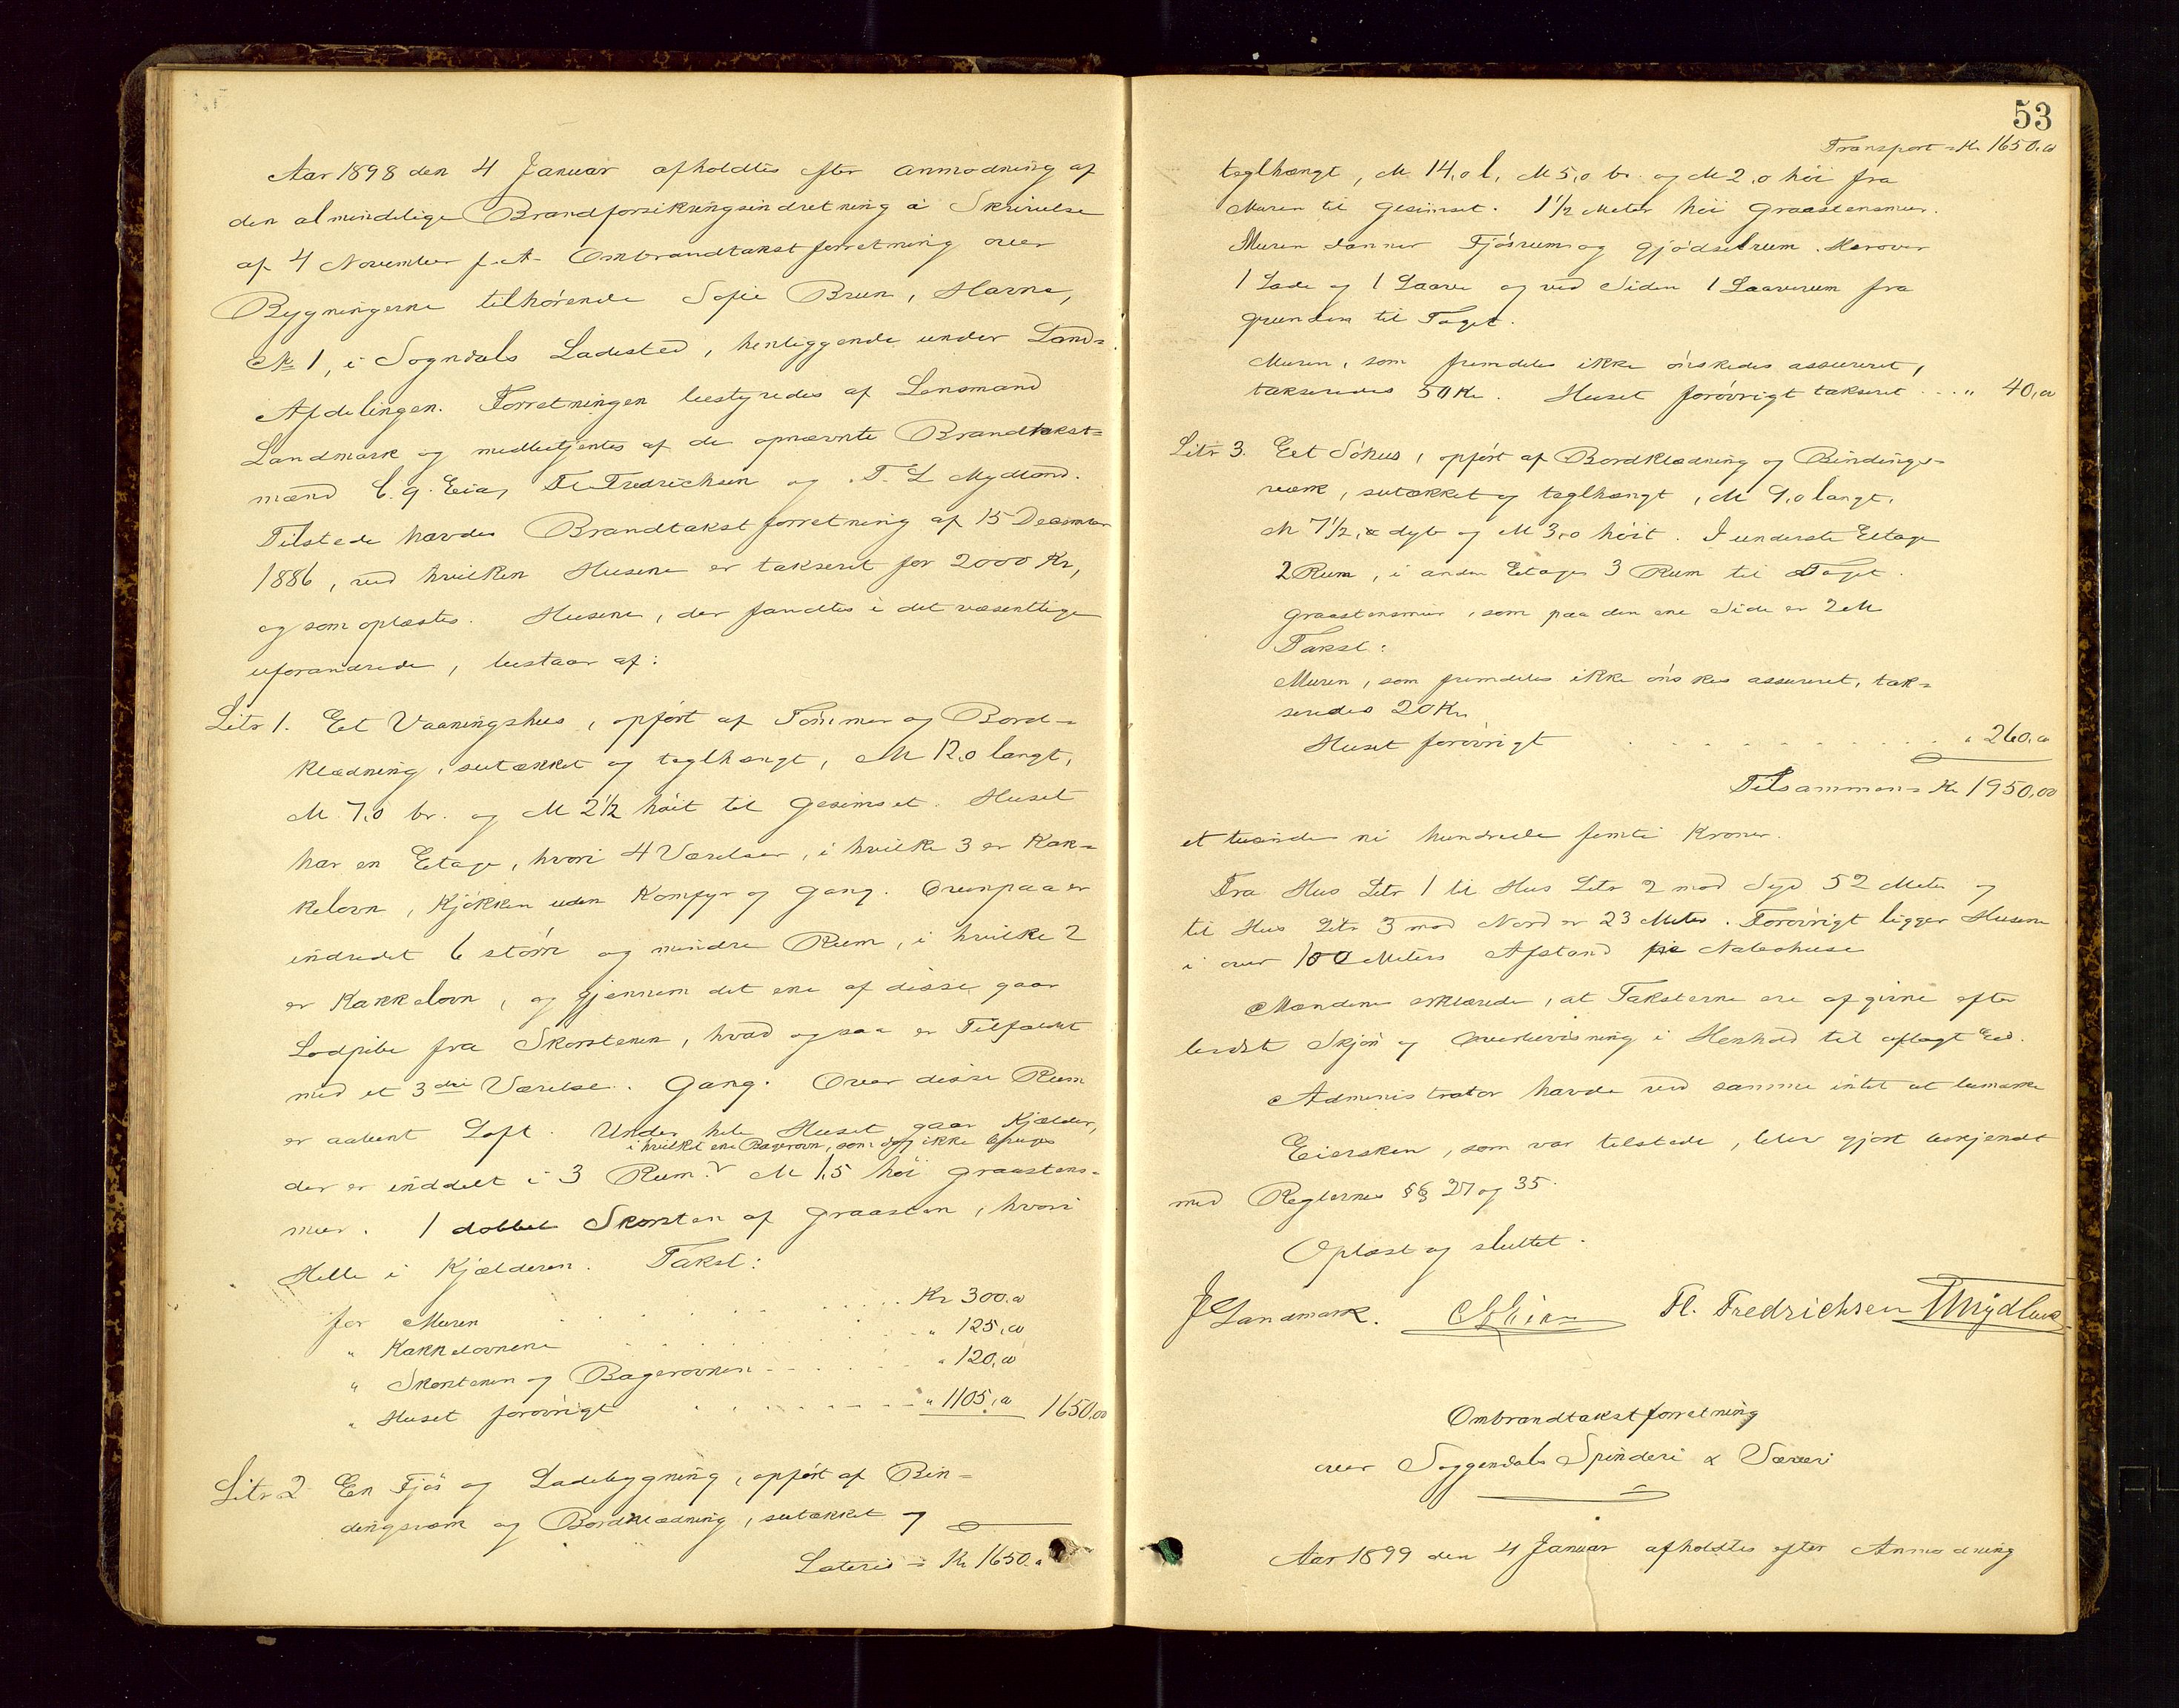 Aar 1898 den 4 Januar afholdtes efter Anmodning af
den almindelige Brandforsikringsindretning i Skrivelse
af 4 November f. A. Ombrandtakstforretning over
Bygningerne tilhørende Sofie Brun, Havne,
№ 1, i Sogndals Ladested, henliggende under Land-
Afdelingen. Forretningen bestyredes af Lensmand
Landmark og medbetjentes af de opnævnte Brandtakst-
mænd C. G. Eia, Fl. Fredrichsen og T. L. Mydland.
Tilstede havdes Brandtakstforretning af 15 December
1886, ved hvilken Husene er takseret for 2000 Kr,
og som oplæstes. Husene, der fandtes i det væsentlige
uforandrede, bestaar af:
Litr 1. Et Vaaningshus, opført af Tømmer og Bord-
klædning, sutækket og teglhængt, M 12,0 langt,
M 7,0 br. og M 2 1/2 høit til Gesimset. Huset
har en Etage, hvori 4 Værelser, i hvilke 3 er Kak-
kelovn, Kjøkken uden Komfyr og Gang. Ovenpaa er
indredet 6 større og mindre Rum, i hvilke 2
er Kakkelovn, og gjennem det ene af disse gaar
Lodpibe fra Skorstenen, hvad ogsaa er Tilfældet
med et 3die Værelse. Gang. Over disse Rum
er aabent Loft. Under hele Huset gaar Kjælder,
i hvilket ene Bagerovn, som dog ikke bruges
der er inddelt i 3 Rum. M 1,5 høi Graastens-
mur. 1 dobbel Skorsten af Graasten, hvori
Helle i Kjælderen. Takst:
for Muren . . . . Kr 300,00
" Kakkelovnene . . . . " 125,00
" Skorstenen og Bagerovnen . . . . " 120,00
" Huset forøvrigt . . . . " 1105,00 1650,00
Litr 2 En Fjøs og Ladebygning, opført af Bin-
dingsværk og Bordklædning, sutækket og
Lateris = Kr 1650,00
53
Transport = Kr 1650,00
teglhængt, M 14,0 l, M 5,0 br. og M 2,0 høi fra
Muren til Gesimset. 1 1/2 Meter høi Graastensmur.
Muren danner Fjøsrum og Gjødselrum. Herover
1 Lade og 1 Laave og ved Siden 1 Laaverum fra
Grunden til Taget.
Muren, som fremdeles ikke ønskedes assureret,
takseredes 50 Kr. Huset forøvrigt takseret . . . " 40,00
Litr 3. Eet Søhus, opført af Bordklædning og Bindings-
værk, sutækket og teglhængt, M 9,0 langt,
M 7 1/2 dybt og M 3,0 høit. I underste Etage
2 Rum, i anden Etage 3 Rum til Taget.
Graastensmur, som paa den ene Side er 2 M
Takst:
Muren, som fremdeles ikke ønskes assureret, tak-
seredes 20 Kr
Huset forøvrigt . . . . " 260,00
Tilsammen = Kr 1950,00
et tusinde ni hundrede femti Kroner.
Fra Hus Litr 1 til Hus Litr 2 mod Syd 52 Meter og
til Hus Litr 3 mod Nord er 23 Meter. Forøvrigt ligger Husene
i over 100 Meters Afstand fra Nabohuse
Mændene erklærede, at Taksterne ere afgivne efter
bedste Skjøn og Overbevisning i Henhold til aflagt Eed.
Administrator havde ved samme intet at bemærke
Eiersken, som var tilstede, blev gjort bekjendt
med Reglernes §§ 27 og 35.
Oplæst og sluttet.
J Landmark. CGEia Fl. Fredrichsen TLMydland
Ombrandtakstforretning
over Soggendals Spinderi & Væveri
Aar 1899 den 4 Januar afholdtes efter Anmodning